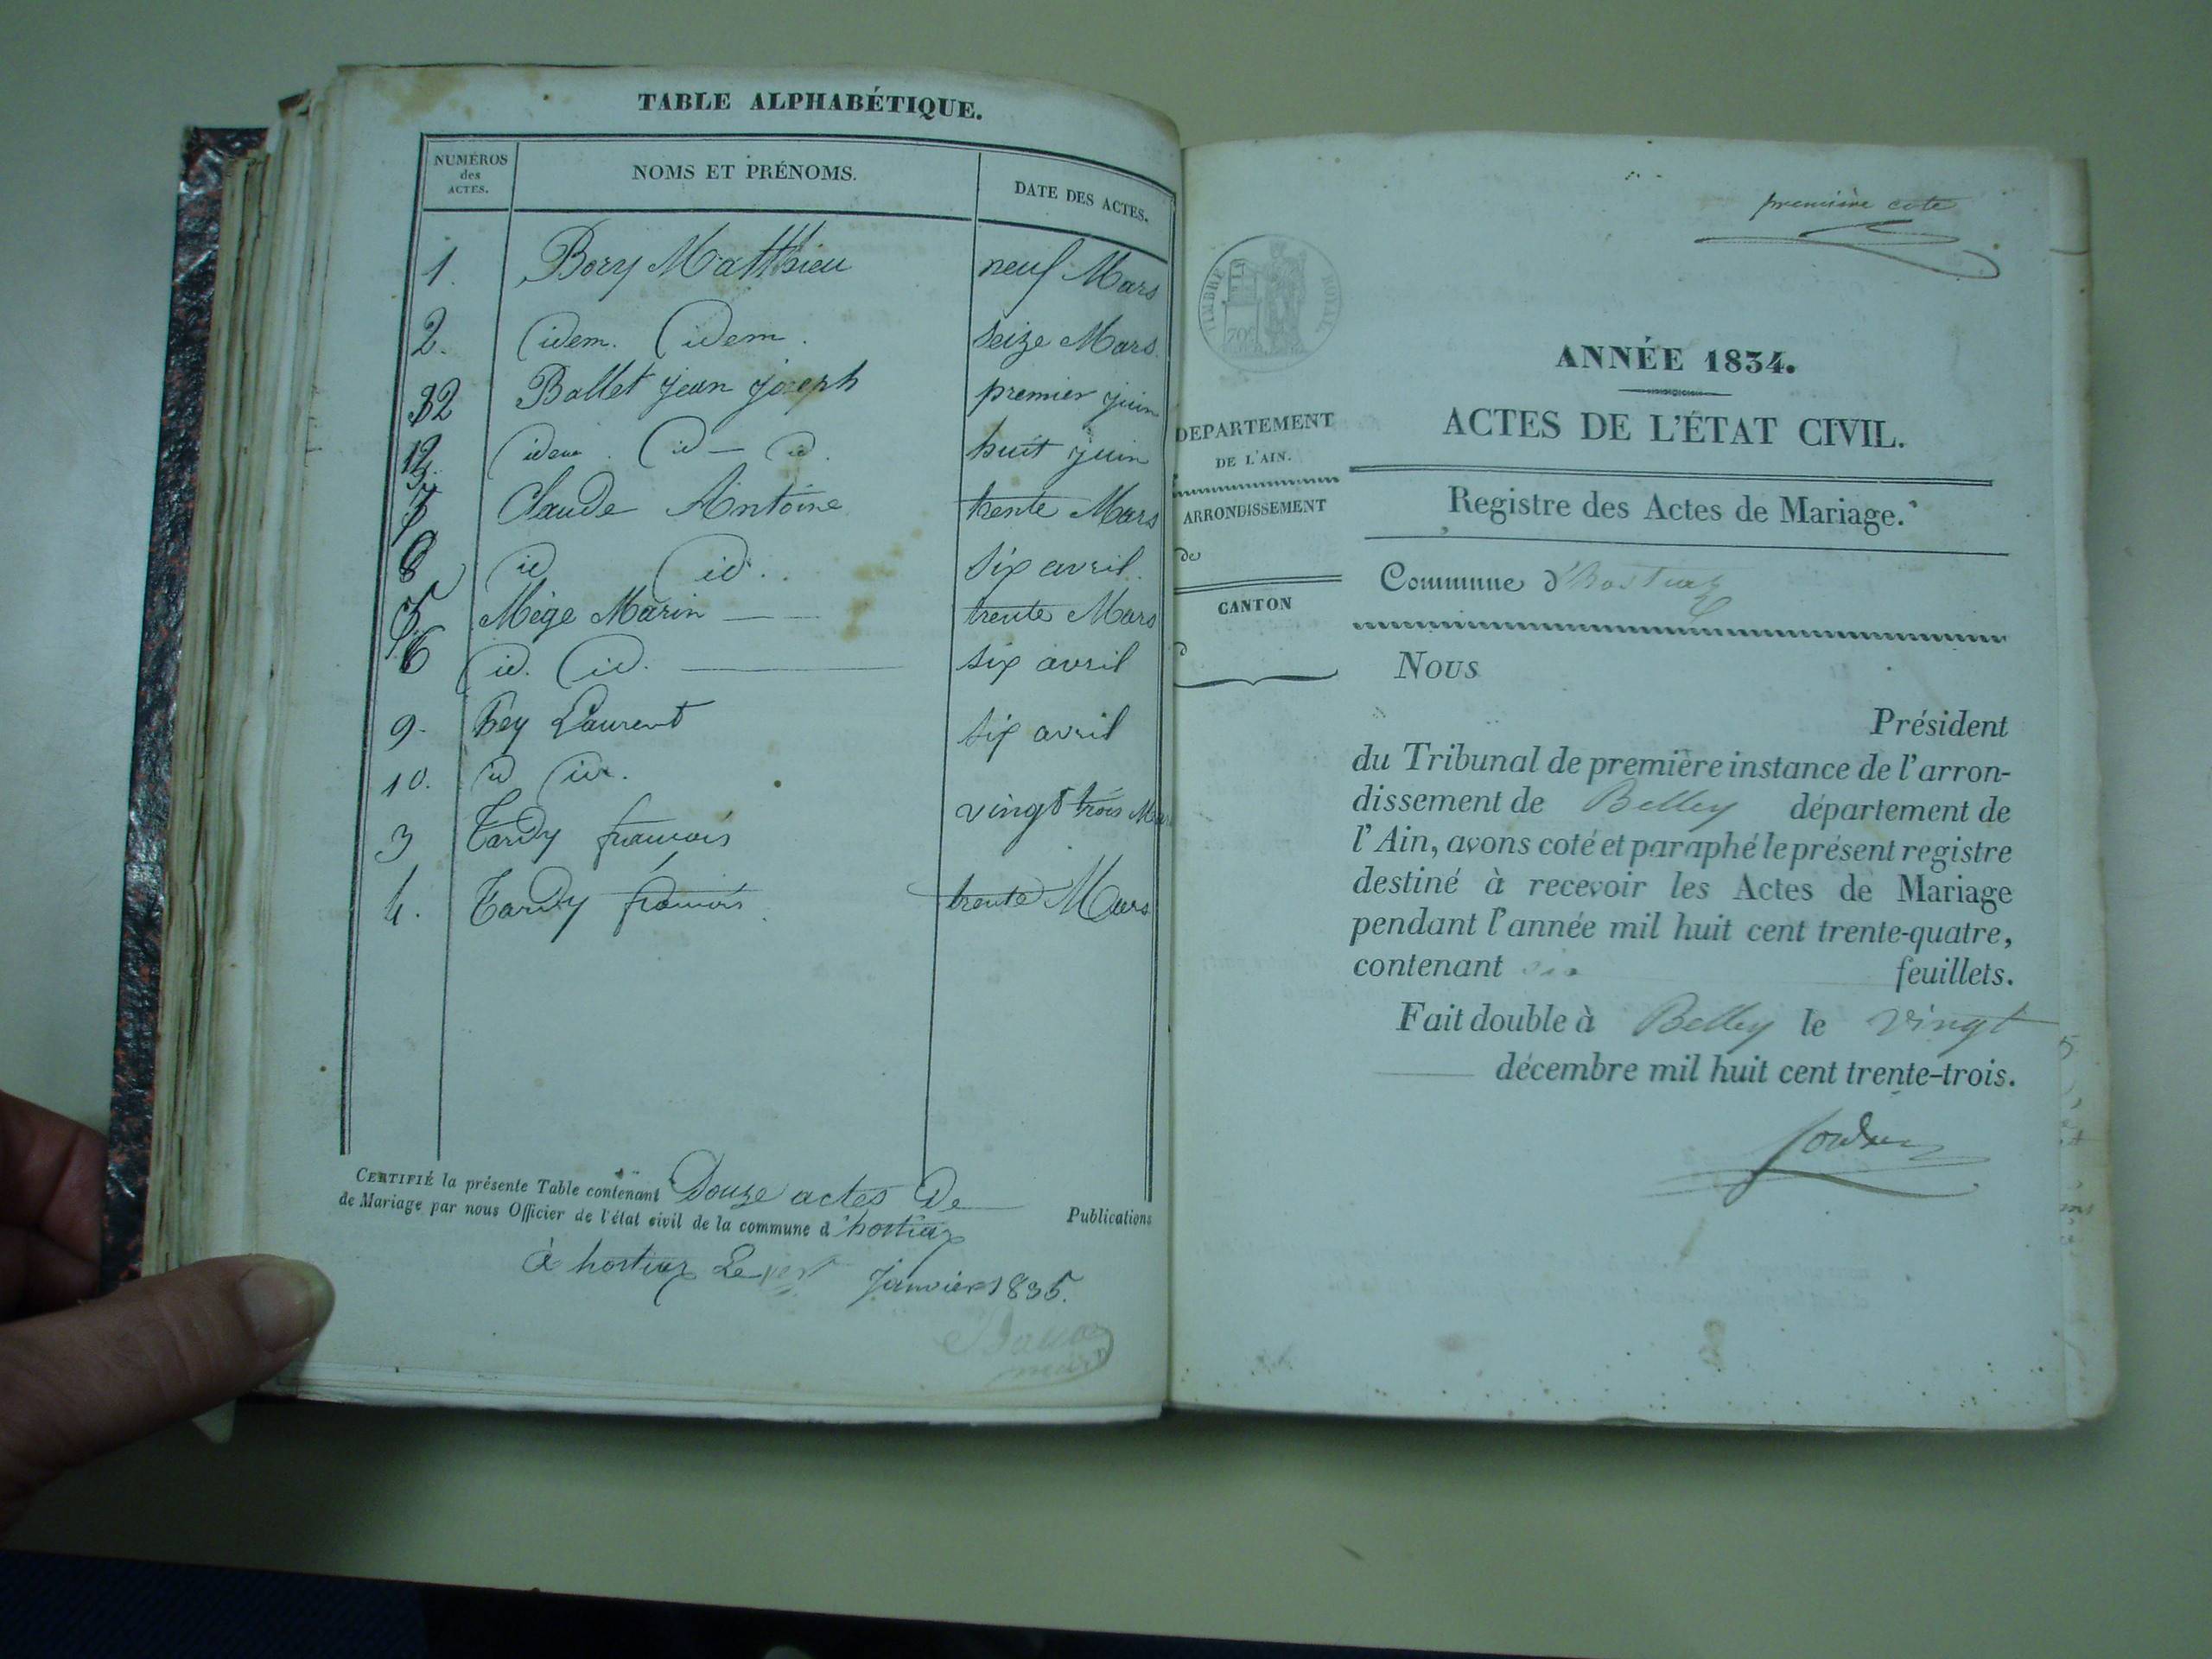 TABLE ALPHABÉTIQUE.
NUMÉROS des ACTES.
NOMS ET PRÉNOMS.
DATE DES ACTES.
1. Bory Matthieu neuf Mars
2. idem. idem. seize Mars
Ballet jean joseph premier juin
idem. id — id. huit juin
Claude Antoine trente Mars
8 id id. six avril.
5 Mége Marin — trente Mars
6 id. id. — six avril
9. Rey Laurent six avril
10. id id.
3 Tardy francois vingt trois Mars
4. Tardy francois trente Mars
CERTIFIÉ la présente Table contenant Douze actes De Publications
de Mariage par nous Officier de l'état civil de la commune d'hostiaz
à hostiaz Le janvier 1835.
première cote
TIMBRE ROYAL
70c
ANNÉE 1834.
ACTES DE L'ÉTAT CIVIL.
DEPARTEMENT
DE L'AIN.
ARRONDISSEMENT
de
CANTON
d
Registre des Actes de Mariage.
Commune d'hostiaz
Nous
Président
du Tribunal de première instance de l'arron-
dissement de Belley département de
l'Ain, avons coté et paraphé le présent registre
destiné à recevoir les Actes de Mariage
pendant l'année mil huit cent trente-quatre,
contenant six feuillets.
Fait double à Belley le vingt
décembre mil huit cent trente-trois.